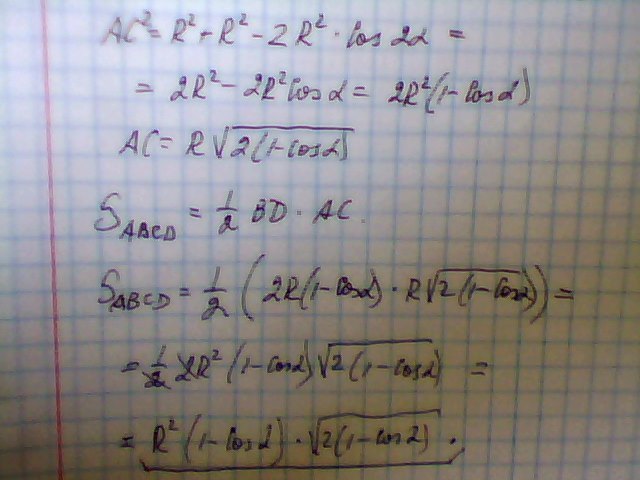 AC² = R² + R² - 2R² · cos 2α =
= 2R² - 2R² cos α = 2R² (1 - cos α)
AC = R √2(1 - cos α)
S_ABCD = 1/2 BD · AC.
S_ABCD = 1/2 (2R(1 - cos α) · R√2(1 - cos α)) =
= 1/2 2R² (1 - cos α) √2(1 - cos α) =
= R² (1 - cos α) · √2(1 - cos α) .